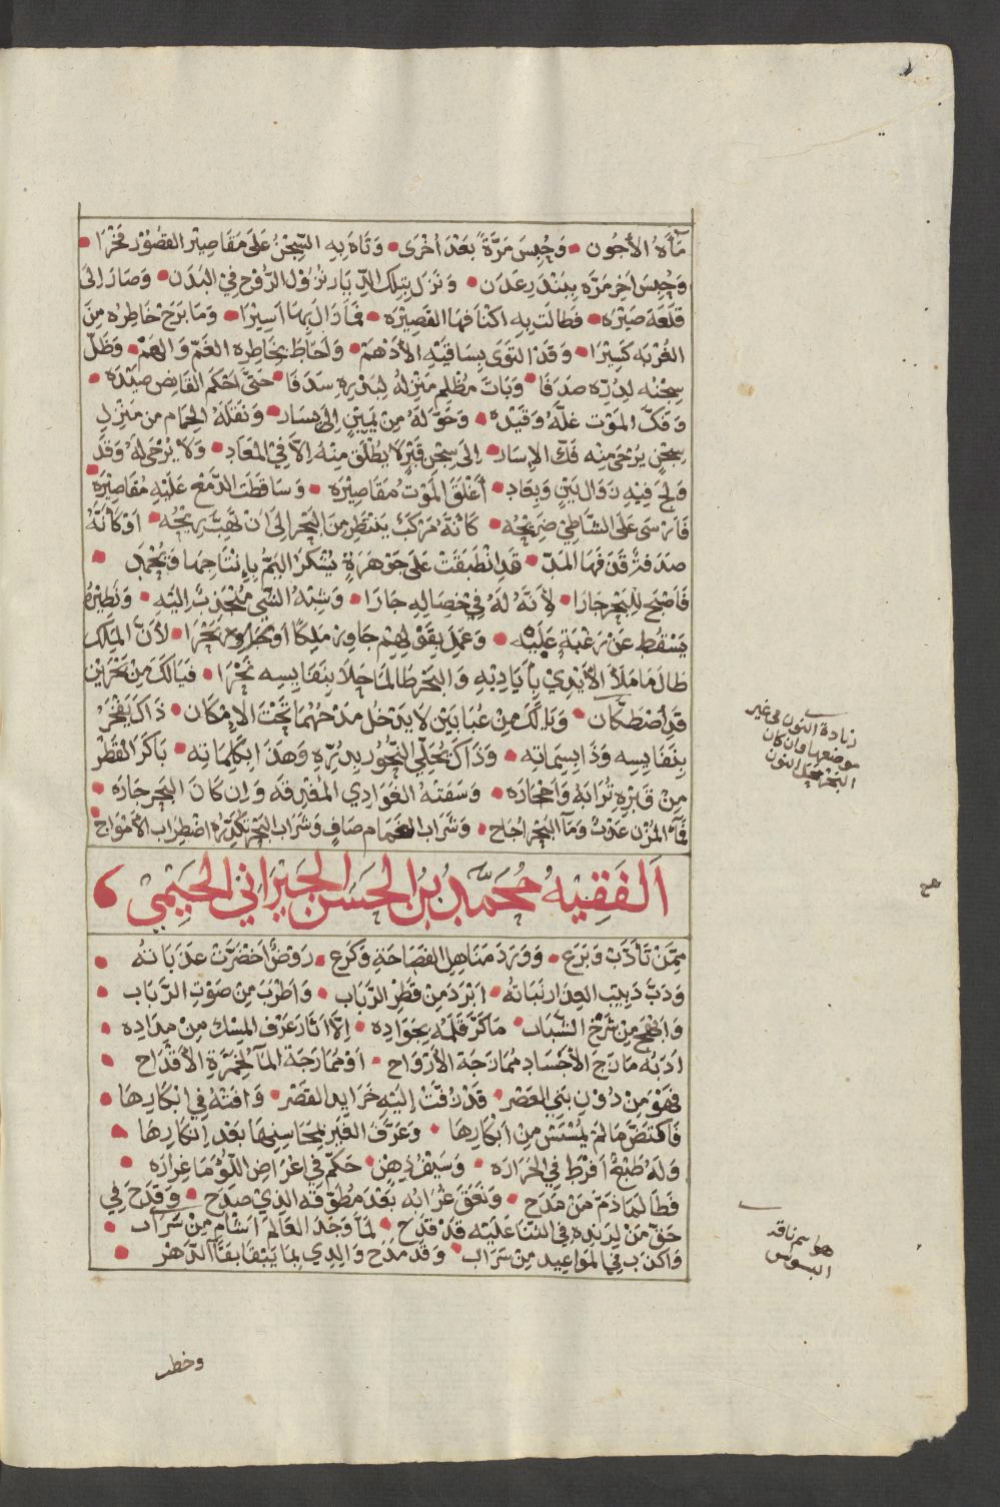 مَآءهُ الأجُون • وَحُبِسَ مَرَّةً بَعْدَ أخْرَى • وَتَاهَ بِهِ السِّجْنُ عَلَى مَقَاصِيْرِ القصُوْرِ فَخْرَا •
وَحُبِسَ آخِر مَرَّه بِبَنْدَرِ عَدَن • وَنَزَلَ بِتِلكَ الدِّيَارِ نُزُوْل الرُّوْحِ فِيْ البَدَن • وَصَارَ اِلَى
قَلعَة صِيْرَه • فَطَالَت بِهِ اكْنَافهَا القَصِيْرَه • فَمَا زَالَ بِهَا اَسِيْرَا • وَمَا بَرَحَ خَاطِرُه مِنَ
الغُرْبَه كَسِيْرَا • وَقَدْ التَوَى بِسَاقَيْهِ الأدْهَم • وَاَحَاطَ بِخَاطِرِه الغَمّ وَالهَمّ • وَظَلَّ
سِجْنه لِدُرِّه صَدَفَا • وَبَاتَ مُظْلِم مَنْزِلهُ لِبَدْرِهِ سَدَفَا • حَتَّى احْكَم القَانِص صَيْدَه •
وَفَكَّ المَوْت غلّهُ وَقَيْدَه • وَحَوَّلهُ مِنْ يَمِيْنٍ اِلى يسَار • وَنَقَلَهُ الحِمَام من مَنْزِلِ
سِجْنٍ يُرْجَى مِنْه فَكّ الإسَار • اِلى سِجْنِ قَبْرٍ لاَ يُطْلَق مِنْهُ اِلاَّ فِي المَعَاد • وَلاَ يُرْجَى لَهُ وَقَد
وَلجَ فِيْهِ زَوَال بَيْنٍ وَبِعَاد • أَغْلَقَ المَوْتُ مَقَاصِيْرَه • وَسَاقَطَت الدَّمْع عَلَيْهِ مَقَاصِيْرَه •
فَارْسَى عَلَى الشَّاطِي ضَرِيْحُه • كَانَهُ مَرْكَبٌ يَنْتَظِر مِنَ البَحْرِ اِلَى اَنْ تَهُبّ رِيْحُه • اَوْ كَانَّهُ
صَدَفةٌ قَذَفَهَا المَدّ • قَدِ انْطَبَقَتْ عَلَى جَوْهَرَةٍ يُشْكَرُ اليَمُّ بِانْتَاجِهَا وَيُحْمَد •
فَاصْبَحَ لِلبَحْرِ جَارَا • لأنَّهُ لَهُ فِيْ خصَالِهِ جَارَا • وَشِبْهُ الشَّيْ مُنْجَذِبٌ اِليْهِ • وَنَظِيْرُهُ
يَسْقُط عَنْ رَغْبَةٍ عَلَيْه • وَعَمِلَ بِقَوْلِهِمْ جَاوِر مَلِكًا اَوْ بَحْرَا • لأنّ المَلِك
طَالَمَا مَلأ الأيْدِيْ بِأيَادِيْهِ وَالبَحْرِ طَالَمَا حَلاَ بِنَفَايِسِهِ نَحْرَا • فَيَالَكَ مِنْ بَحْرَيْن
قَدِ اصْطَكَّان • وَيَالَكَ مِنْ عُبَابَيْن لاَ يَدْخُل مَدْحُهُمَا تَحْتَ الإمْكَان • ذَاكَ يَفْخَرُ
بِنَفَايِسِه وَذَا بِسِمَاتِه • وَذَاكَ يُحَلِّي النُّحُور بِدُرِّهِ وَهَذَا بِكَلِمَاتِه • بَاكَرَ القَطْرُ
مِنْ قَبْرِهِ تُرَابَهُ وَاَحْجَارَه • وَسَقَتْهُ الغَوَادِي المُغْدِقَه وَاِن كَانَ البَحْر جَارَه •
فَمَآء المُزْن عَذْبٌ وَمَآ البَحْر اُجَاج • وَشَرَاب الغَمَام صَافٍ وَشَرَاب البَحْر يُكَدِّرُه اضْطِرَاب الأمْوَاج •
اَلفَقِيْهُ مُحَمَّد بْنُ الحَسَن الجِيْرَانِيْ الحَيْمِيْ
مِمَّنْ تَأدَّبَ وَبَرَع • وَوَرَدَ مَنَاهِل الفَصَاحَةِ وَكَرَع • رَوْضٌ اَخْضَرَّتْ عَذَبَاتُه •
وَدَبَّ دَبِيْبَ العِذَار نَبَاتُه • اَبْرَد مِن قَطْرِ الرَّبَاب • وَاَطْرَب مِنْ صَوْتِ الرَّبَاب •
وَابْهَج مِن شَرْخِ الشَّبَاب • مَا كَرَّ قَلَمُه بِجَوَادِه • اِلاَّ اثَارَ عَرْفَ المِسْك مِنْ مِدَادِه •
ادَبُه مَازَجَ الأجْسَاد مُمَازَجَة الأرْوَاح • اَوْ مُمَازَجَة المَآء لِخَمْرَةِ الأقْدَاح •
فَهْوَ مِنْ دُوْنِ بَنِي العَصْر • قَدْ زُفَّتْ اِليْه خَرَايد القَصْر • وَافَتْهُ فِي اَبْكَارِهَا •
فَاقْتَضَّ مَا لَمْ يُسْتَمْسَ مِنْ اَبْكَارِهَا • وَعَرَّفَ الغَيْر بِمَحَاسِنِهَا بَعْدَ اِنْكَارِهَا •
وَلَهُ طَبْعٌ اَفْرَط فِي الحَرَارَه • وَسَيْفُ ذِهْنٍ • حَكَّمَ فِي اعْرَاضِ اللُّؤَمَا غِرَارَه •
فَطَالَمَا ذَمّ مَنْ مَدَح • وَنَعَقَ غُرَابُه بَعْدَ مُطَوّقه الذِيْ صَدَح • وَقَدَحَ فِي
حَقّ مَنْ زَنْدُه فِي الثّنَا عَلَيْه قَدْ قَدَح • لَمَّا وَجَدَ العَالَم اَشْأَم مِنْ سَرَاب •
وَاكْذَب فِي المَوَاعِيد مِنْ سَرَاب • وَقَد مَدَح وَالِدِي بِمَا يَبْقَا بِبَقَآ الدَّهْر •
زيادة النون في غير
موضعها وان كان
النون
صح
هو اسم ناقة
البسوس
وخطر